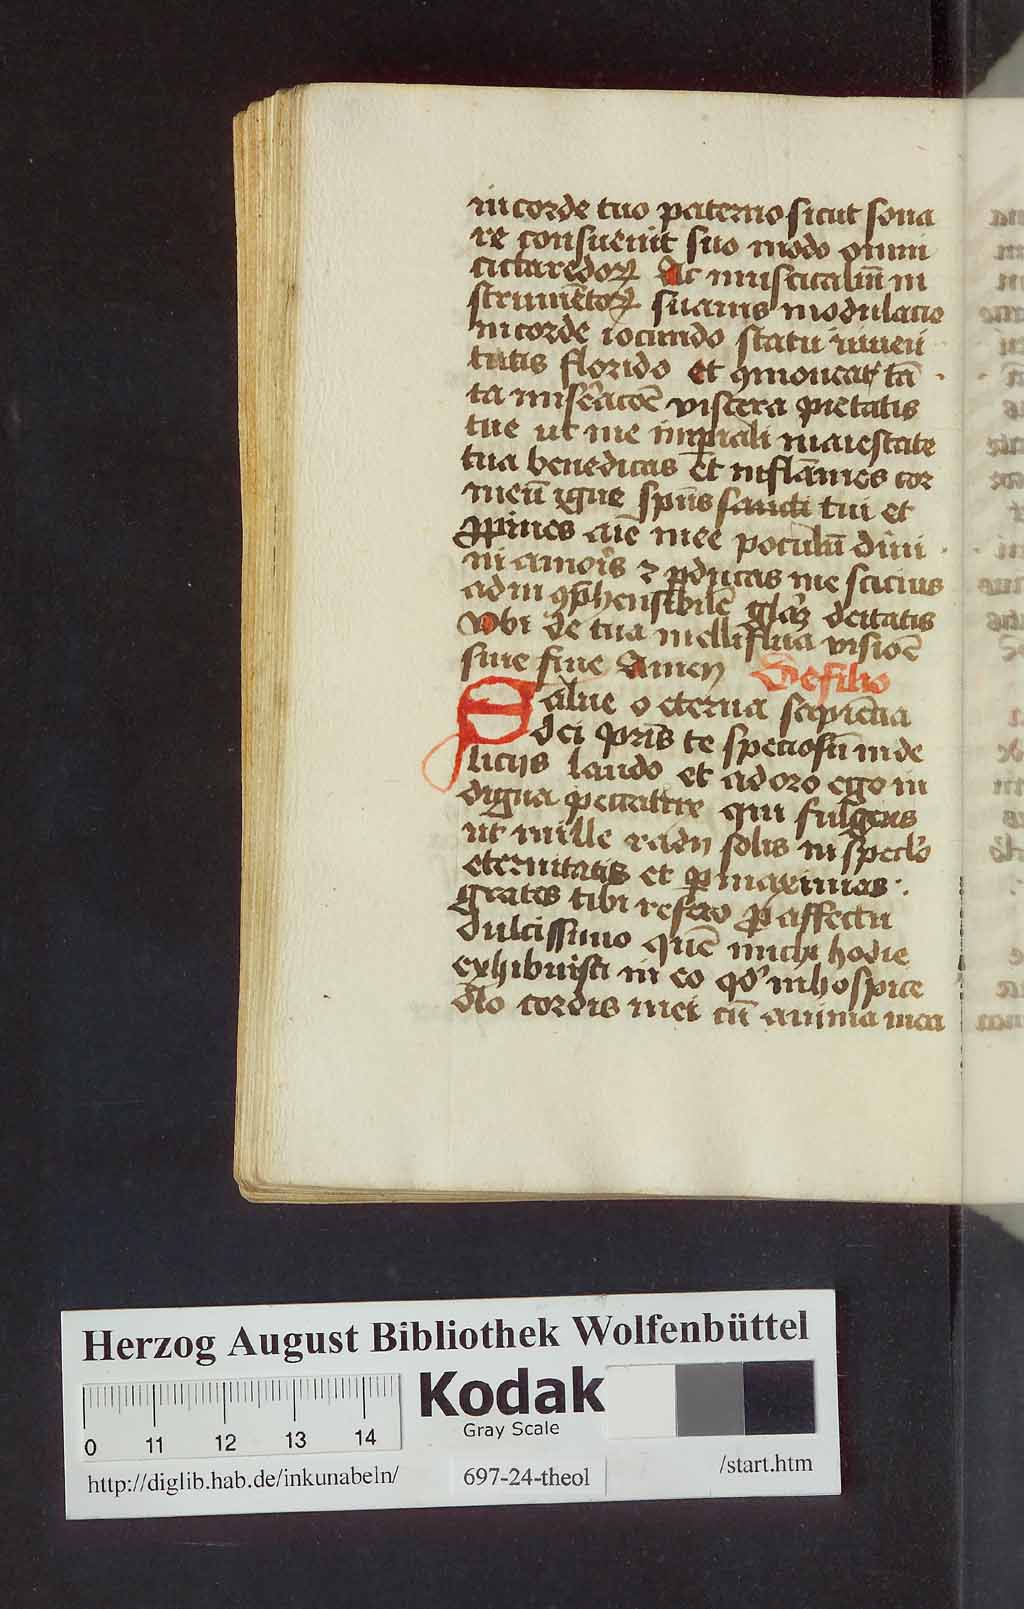 in corde tuo paterno sicut sona
re consuenit suo modo omni
citaredoꝝ Ac musicaliū in
strumētoꝝ suauis modulacio
in corde iocundo statu iuuen
tutis florido et ꝯmoueat̉ tā
ta mis̉acōē viscera pietatis
tue ut me imꝑiali maiestate
tua benedicas Et inflāmes cor
meū igne spūs sancti tui et
ꝓpines aīe mee poculū diui
ni amoris ⁊ ꝑducas me sacius
ad in ꝯp̄hensibilē gl'āȝ deitatis
Vbi de tua melliflua visiōē
sine fine Amen De filio
Salue o eterna sapiēcia
dei pr̄is te speciosū in de
licijs laudo et adoro ego in
digna peccatrix qui fulgens
ut mille radij solis in spec̄lo
eternitatis et ꝑ maximas ·
grates tibi refero ꝓ affectu
dulcissimo quē michi hodie
exhibuisti in eo qd' in hospice
c̄lo cordis mei cū anima mea
Herzog August Bibliothek Wolfenbüttel
Kodak
Gray Scale
0 11 12 13 14
http://diglib.hab.de/inkunabeln/
697-24-theol
/start.htm